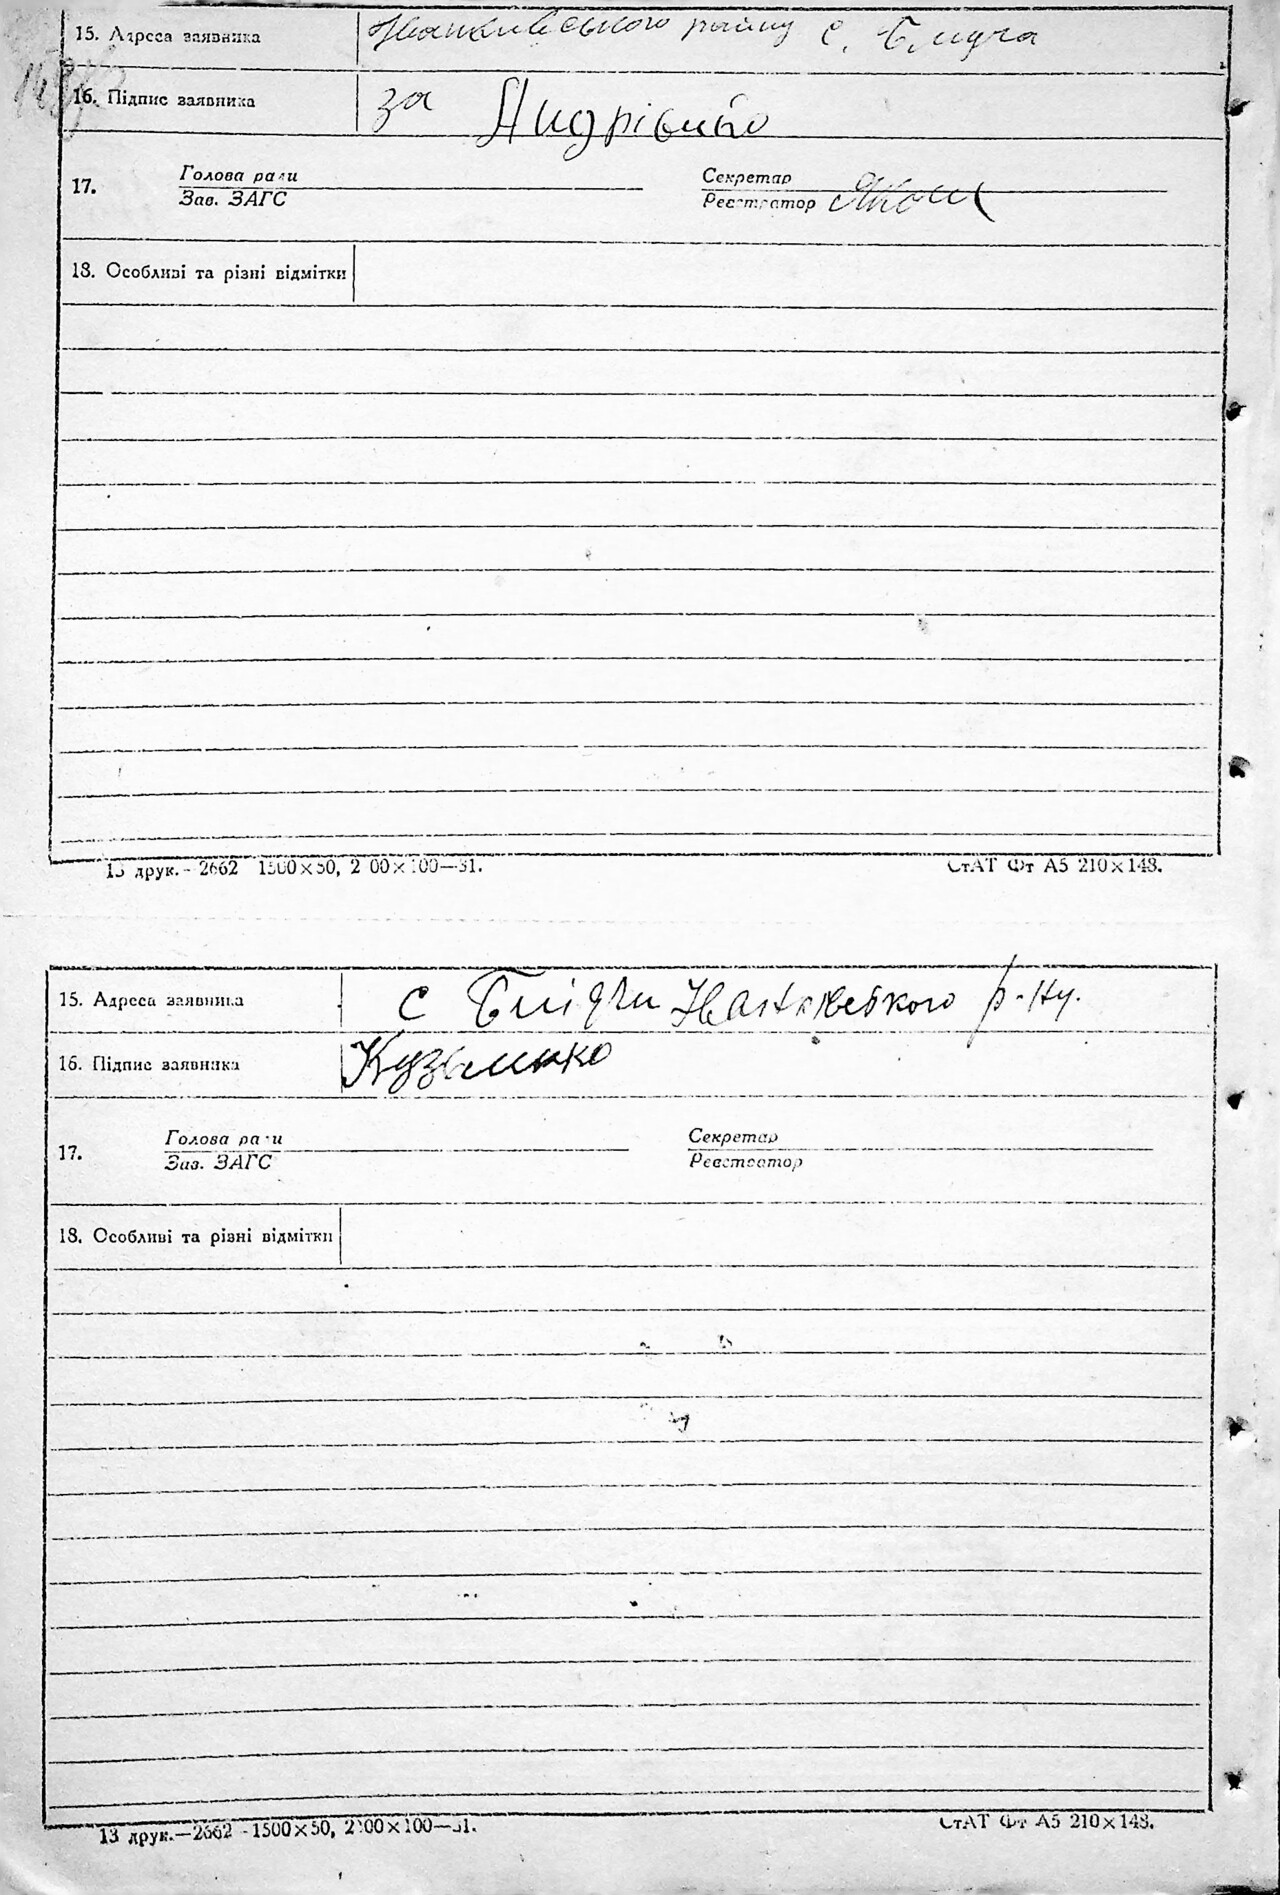 15. Адреса заявника Иванкивського району с. Блидча
16. Підпис заявника за Андрієнко
Голова ради Секретар
17.
Зав. ЗАГС Реєстратор
18. Особливі та різні відмітки
13 друк.-2662 1500×50, 2 00×100—31. СтАТ Фт А5 210×148.
15. Адреса заявника с Блідчи Іванківського р-ну.
16. Підпис заявника Кузьменко
Голова ради Секретар
17.
Зав. ЗАГС Реєстратор
18. Особливі та різні відмітки
13 друк.—2662 -1500×50, 2 00×100—31. СтАТ Фт А5 210×148.